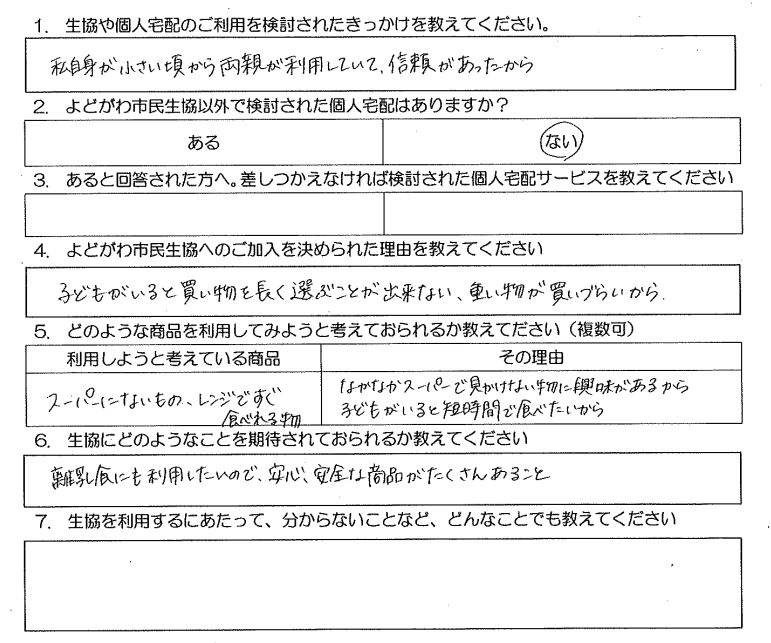 1. 生協や個人宅配のご利用を検討されたきっかけを教えてください。
私自身が小さい頃から両親が利用していて、信頼があったから
2. よどがわ市民生協以外で検討された個人宅配はありますか？
ある ない
3. あると回答された方へ。差しつかえなければ検討された個人宅配サービスを教えてください
4. よどがわ市民生協へのご加入を決められた理由を教えてください
子どもがいると買い物を長く選ぶことが出来ない、重い物が買いづらいから.
5. どのような商品を利用してみようと考えておられるか教えてださい（複数可）
利用しようと考えている商品 その理由
スーパーにないもの、レンジですぐ
食べれる物
なかなかスーパーで見かけない物に興味があるから
子どもがいると短時間で食べたいから
6. 生協にどのようなことを期待されておられるか教えてください
離乳食にも利用したいので、安心、安全な商品がたくさんあること
7. 生協を利用するにあたって、分からないことなど、どんなことでも教えてください